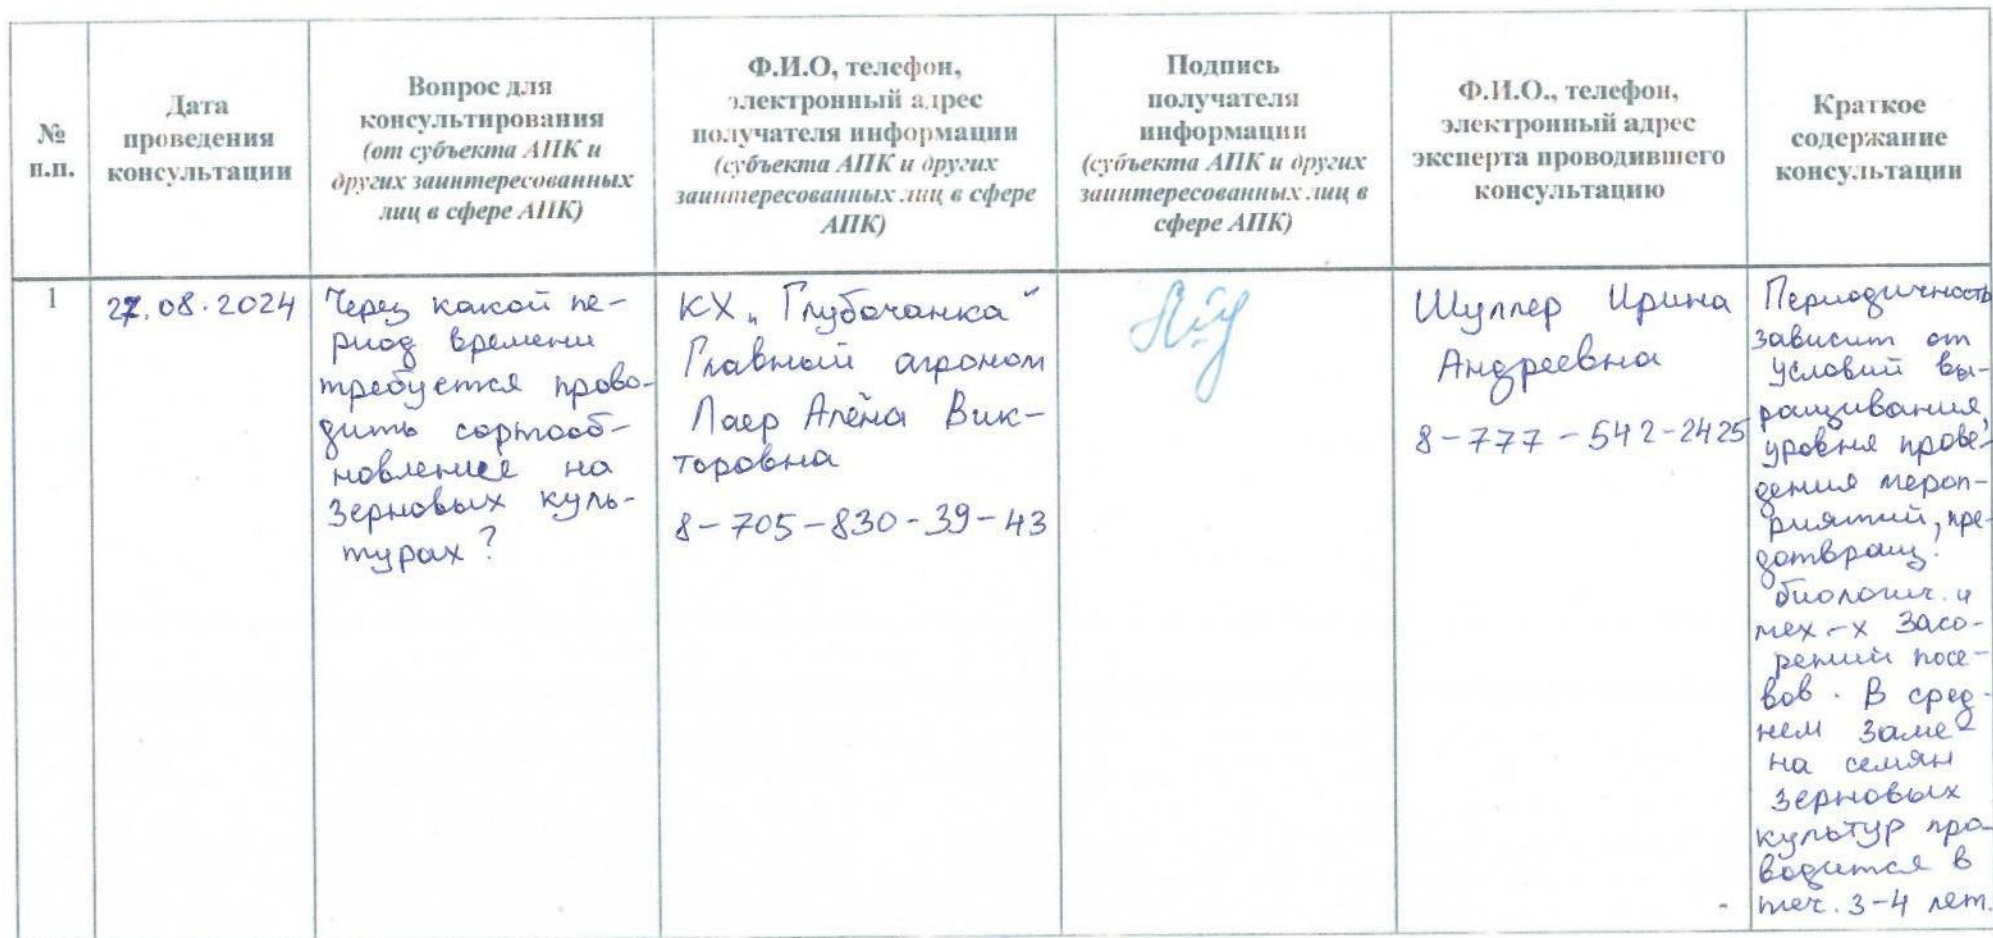 №
п.п.
Дата
проведения
консультации
Вопрос для
консультирования
(от субъекта АПК и
других заинтересованных
лиц в сфере АПК)
Ф.И.О, телефон,
электронный адрес
получателя информации
(субъекта АПК и других
заинтересованных лиц в сфере
АПК)
Подпись
получателя
информации
(субъекта АПК и других
заинтересованных лиц в
сфере АПК)
Ф.И.О., телефон,
электронный адрес
эксперта проводившего
консультацию
Краткое
содержание
консультации
1
27.08.2024
Через какой пе-
риод времени
требуется прово-
дить сортооб-
новление на
зерновых куль-
турах?
КХ „Глубочанка"
Главный агроном
Лаер Алёна Вик-
торовна
8-705-830-39-43
Шуллер Ирина
Андреевна
8-777-542-2425
Периодичность
зависит от
условий вы-
ращивания,
уровня прове-
дения мероп-
риятий, пре-
дотвращ.
биологич. и
мех-х засо-
рений посе-
вов. В сред-
нем заме-
на семян
зерновых
культур про-
водится в
теч. 3-4 лет.